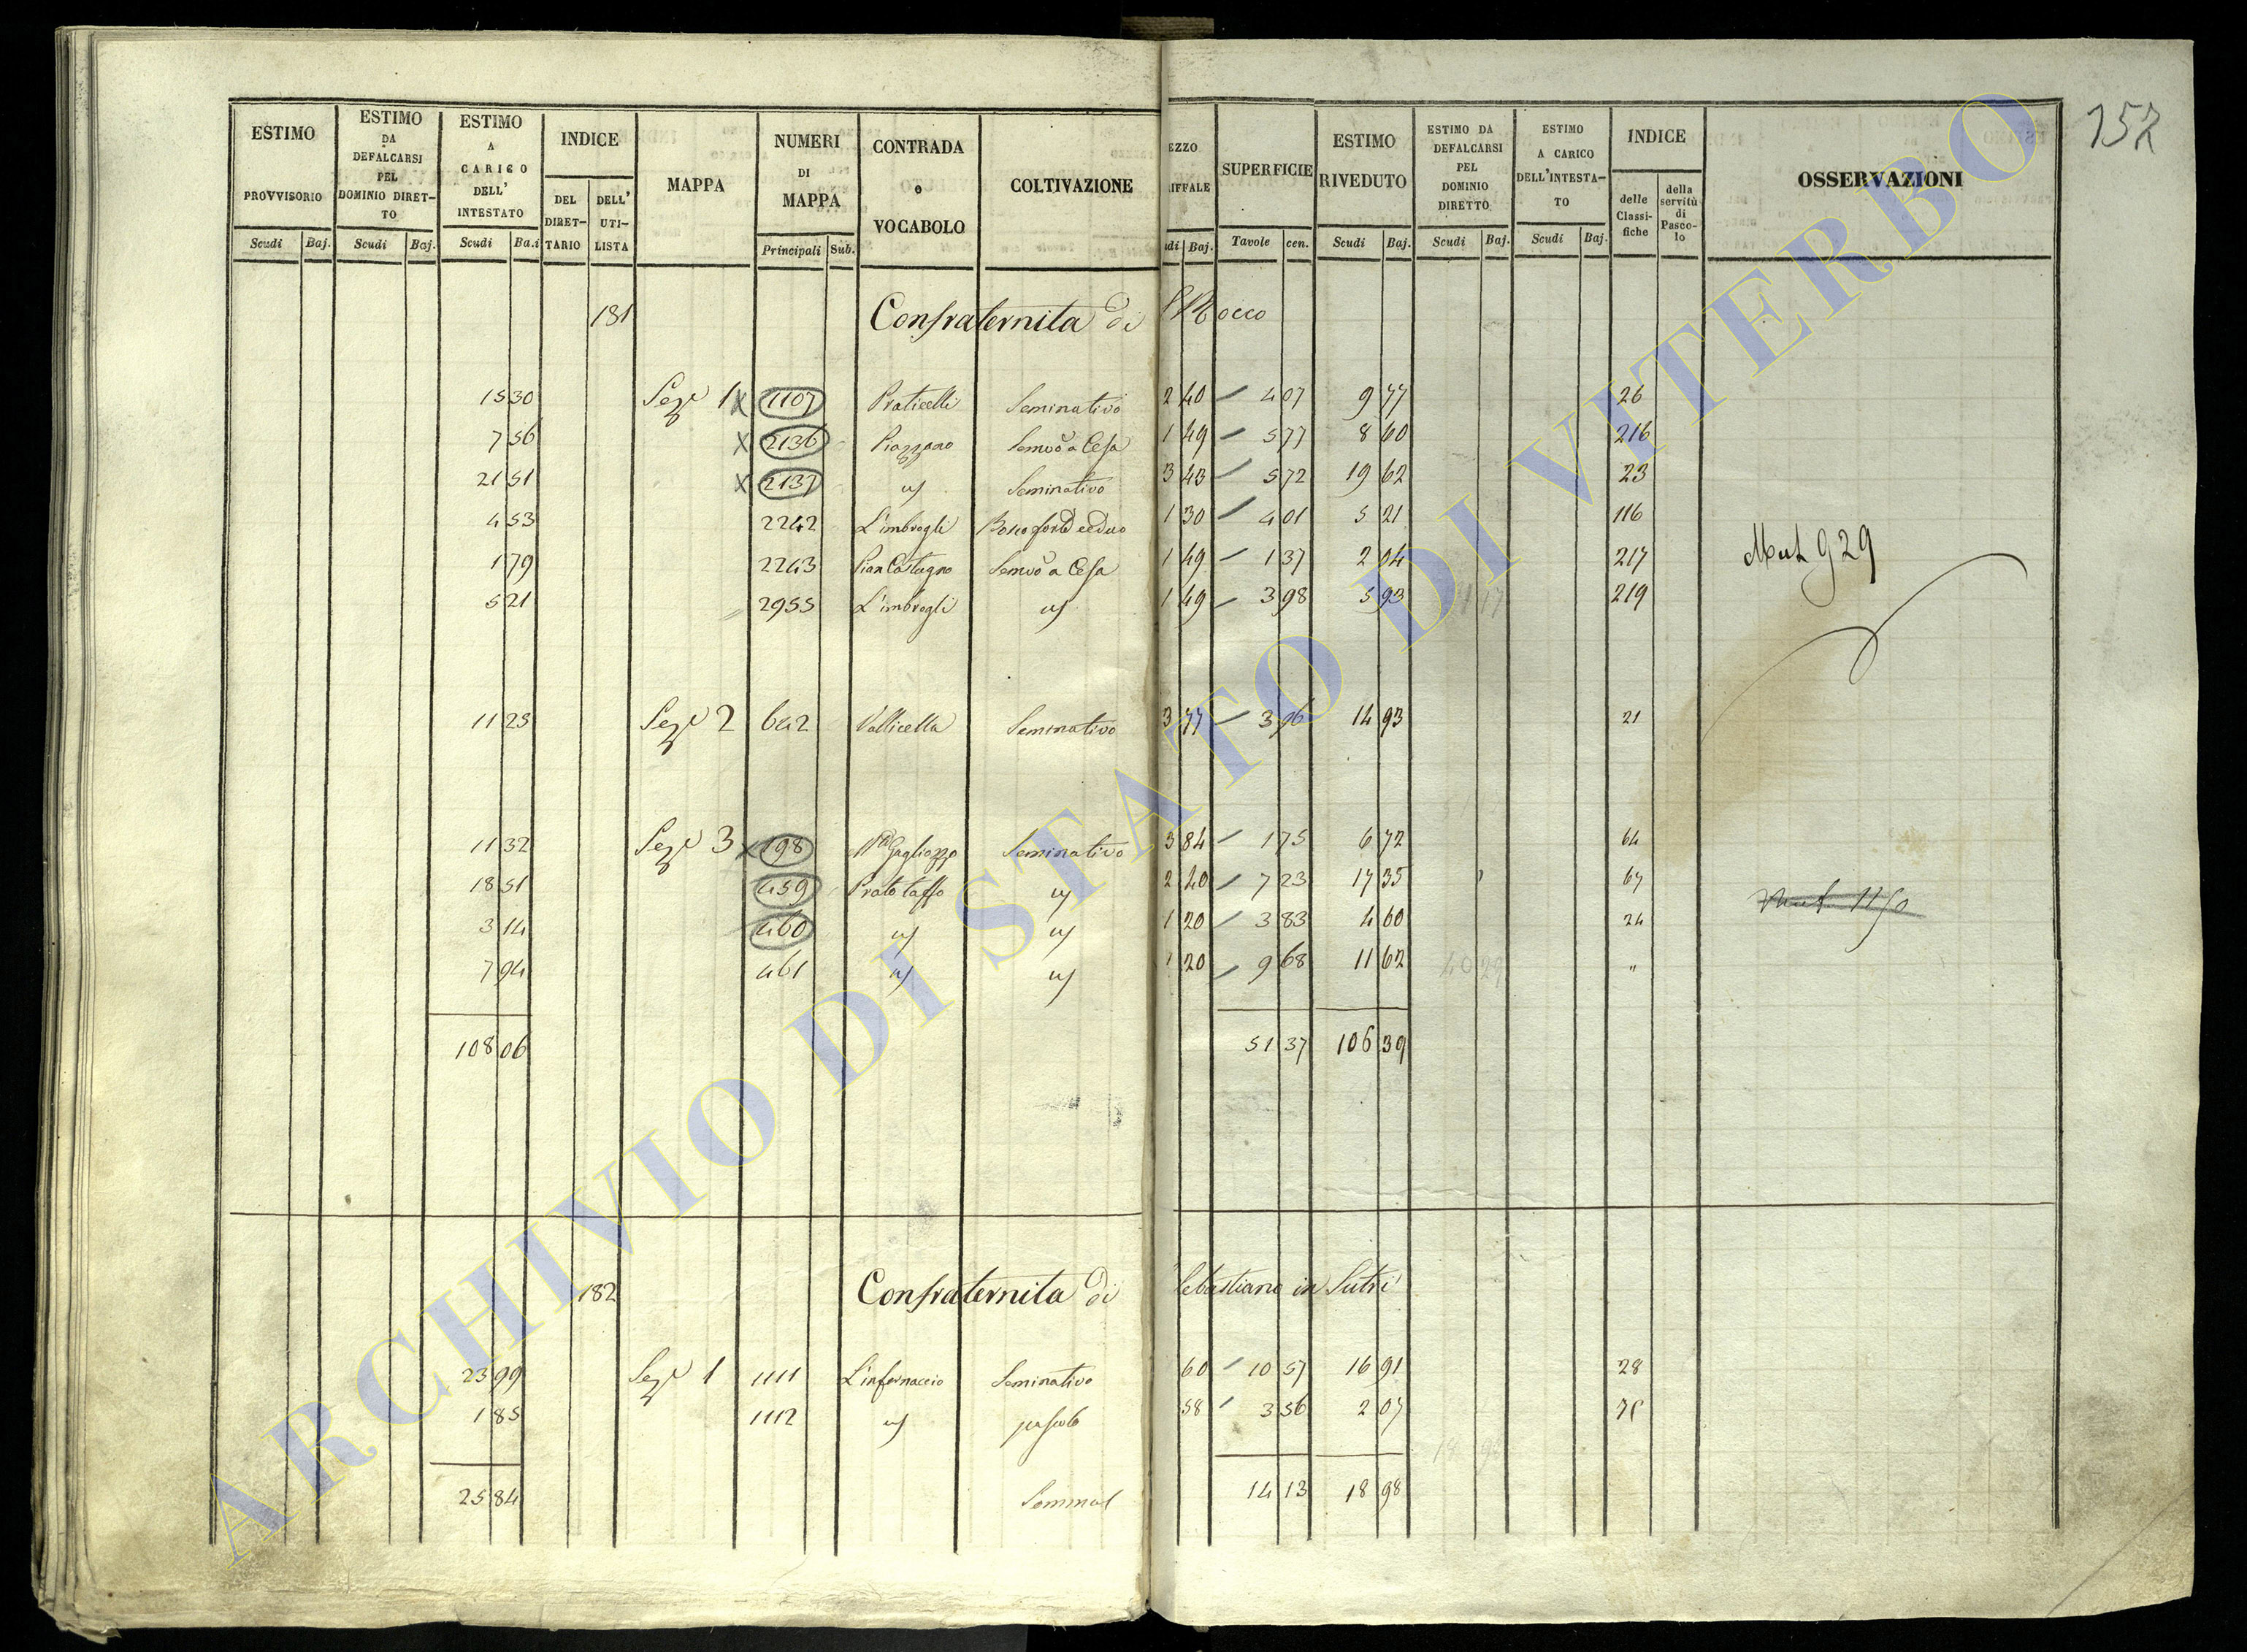 152
ESTIMO PROVVISORIO
ESTIMO DA DEFALCARSI PEL DOMINIO DIRET-TO
ESTIMO A CARICO DELL' INTESTATO
INDICE
DEL DIRET-TARIO
DELL' UTI-LISTA
MAPPA
NUMERI DI MAPPA
CONTRADA o VOCABOLO
COLTIVAZIONE
EZZO IFFALE
SUPERFICIE
ESTIMO RIVEDUTO
ESTIMO DA DEFALCARSI PEL DOMINIO DIRETTO
ESTIMO A CARICO DELL'INTESTA-TO
INDICE
delle Classi-fiche
della servitù di Pasco-lo
OSSERVAZIONI
Scudi Baj. Scudi Baj. Scudi Ba.i Principali Sub. udi Baj. Tavole cen. Scudi Baj. Scudi Baj. Scudi Baj.
181 Confraternita di S Rocco
15 30 Seze 1 x 1107 Praticelli Seminativo 2 40 4 07 9 77 26
7 56 x 2136 Piazzano Semvo a Cesa 1 49 5 77 8 60 216
21 51 x 2137 " Seminativo 3 43 5 72 19 62 23
4 53 2242 L'imbrogli Bosco forte ceduo 1 30 4 01 5 21 116
1 79 2243 Pian Castagno Semvo a Cesa 1 49 1 37 2 04 217 Mut 929
5 21 2955 L'imbrogli " 1 49 3 98 5 93 1 17 219
11 25 Seze 2 642 Vallicella Seminativo 3 77 3 96 14 93 21
11 32 Seze 3 x 198 Gagliozzo Seminativo 3 84 1 75 6 72 64
18 51 459 Prato tasso " 2 40 7 23 17 35 67
3 14 460 " " 1 20 3 83 4 60 24
7 94 461 " " 1 20 9 68 11 62 40 29 "
108 06 51 37 106 39
182 Confraternita di Sebastiano in Sutri
23 99 Seze 1 1111 L'infernaccio Seminativo 60 10 57 16 91 28
1 85 1112 " pascolo 58 3 56 2 07
25 84 Sommal 14 13 18 98
ARCHIVIO DI STATO DI VITERBO